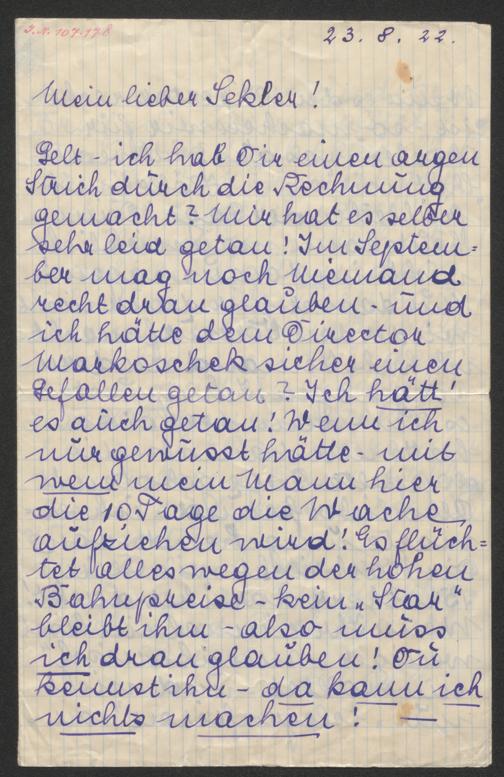 I.N. 107.178
23. 8. 22.
Mein lieber Sekler!
Gelt - ich hab Dir einen argen
Strich durch die Rechnung
gemacht? Mir hat es selber
sehr leid getan! Im Septem=
ber mag noch Niemand
recht dran glauben - und
ich hätte dem Director
Markoschek sicher einen
Gefallen getan? Ich hätt'
es auch getan! Wenn ich
nur gewusst hätte - mit
wem mein Mann hier
die 10 Tage die Wache
aufziehen wird! Es flüch=
tet alles wegen der hohen
Bahnpreise - kein „Star"
bleibt ihm - also muss
ich dran glauben! Du
kennst ihn - da kann ich
nichts machen! —